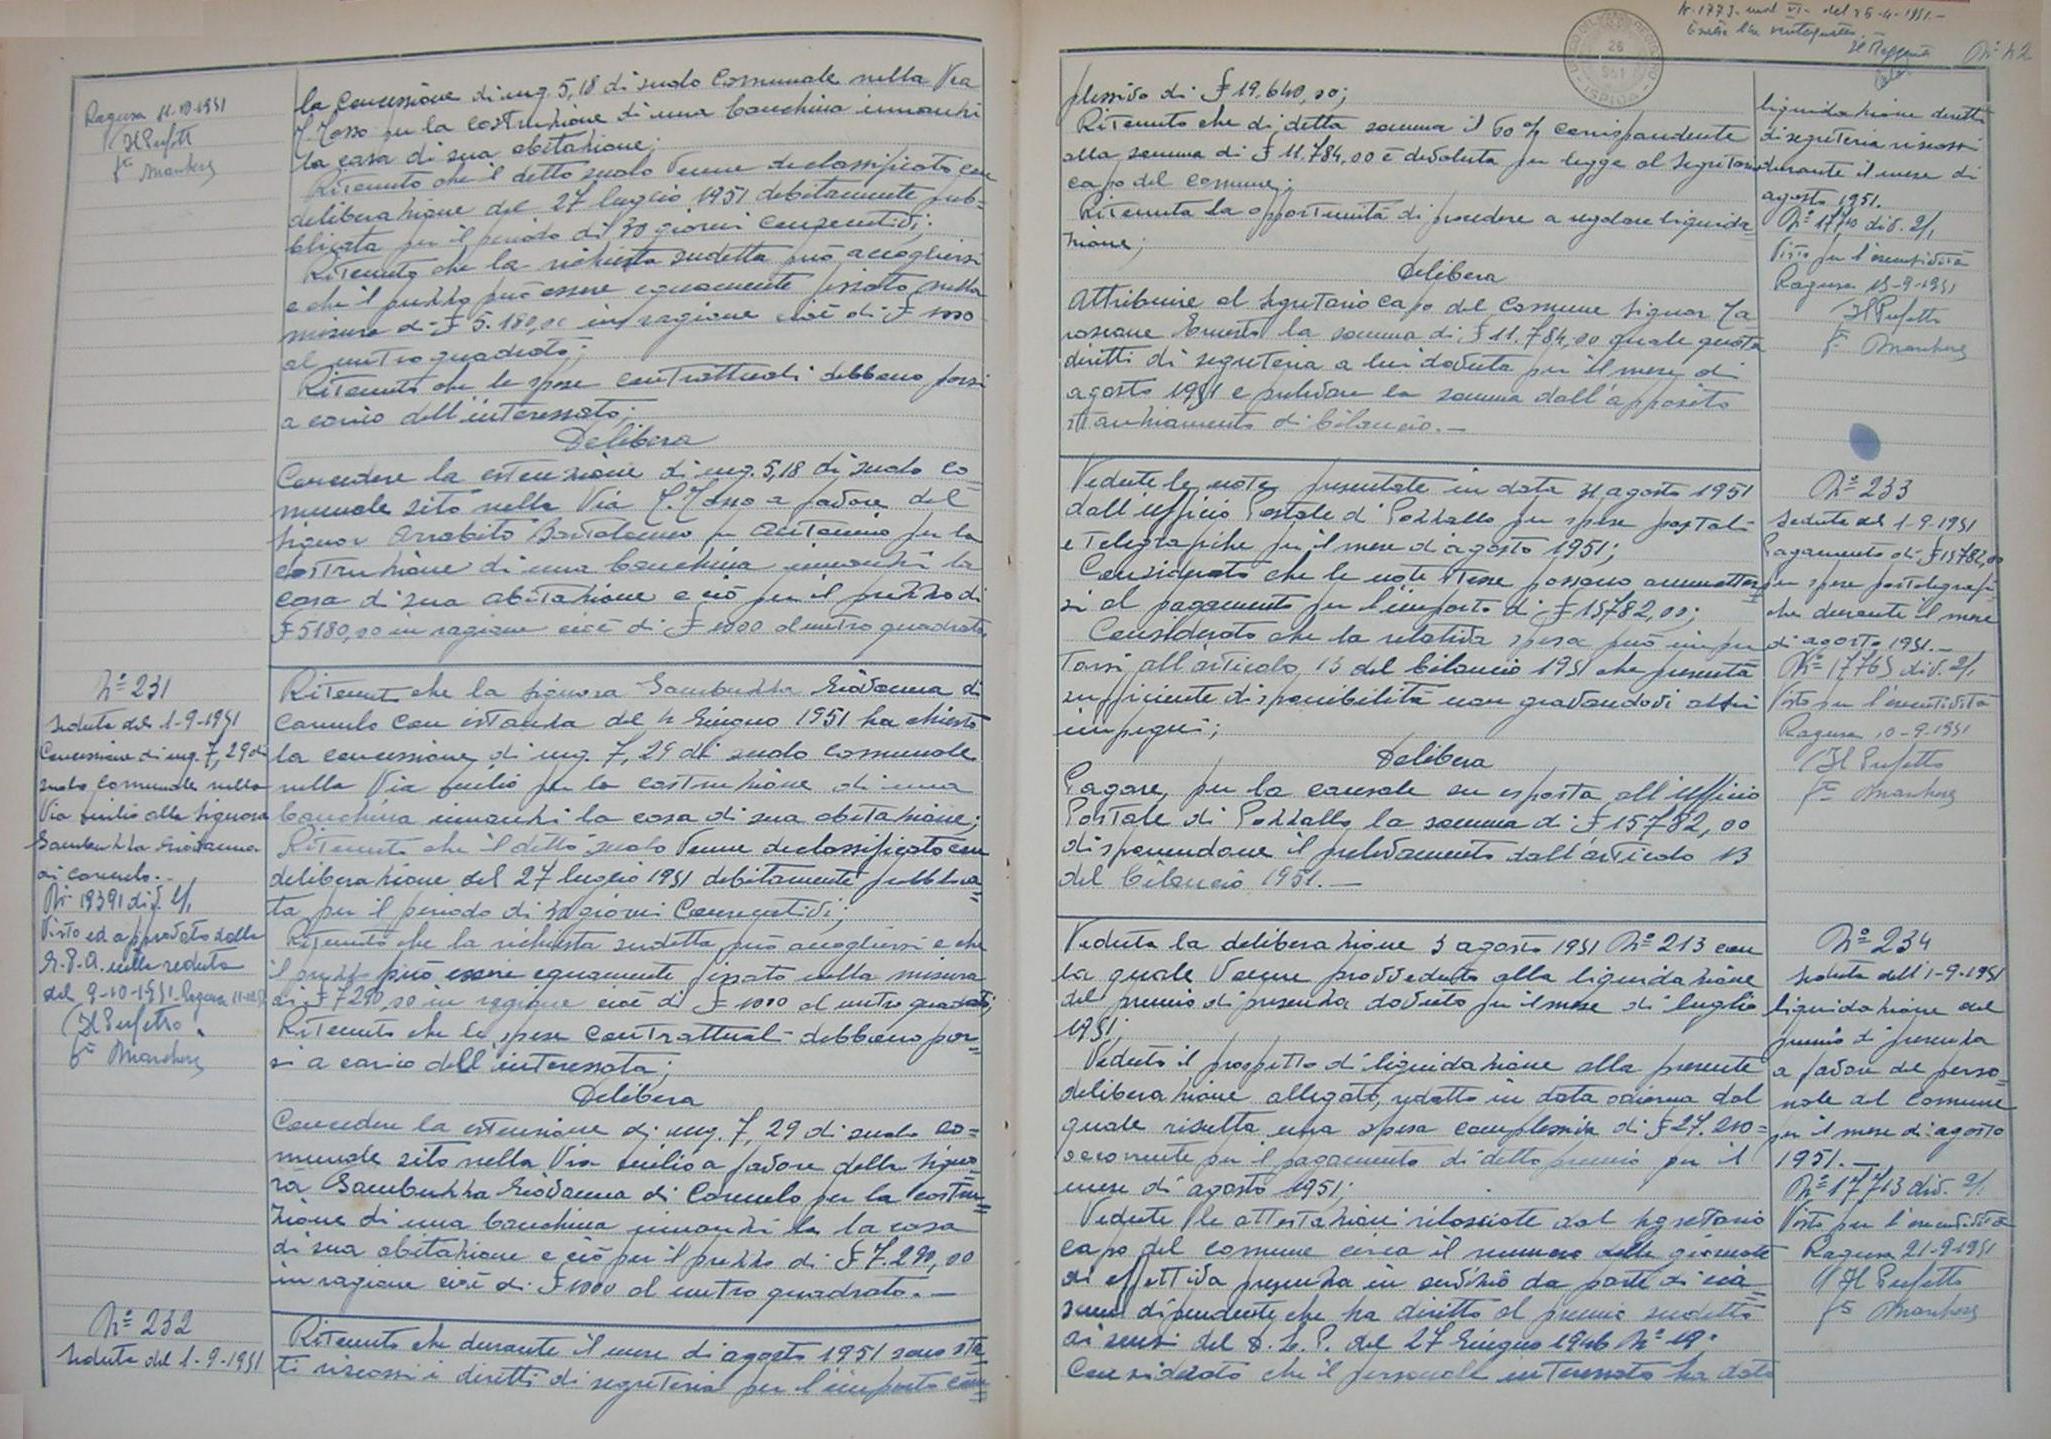 Ragusa 11-10-1951
Il Prefetto
la concessione di mq. 5,18 di suolo comunale nella Via
T. Tasso per la costruzione di una banchina innanzi
la casa di sua abitazione;
Ritenuto che il detto suolo venne declassificato con
deliberazione del 27 luglio 1951 debitamente pub=
blicata per il periodo di 30 giorni consecutivi;
Ritenuto che la richiesta sudetta può accogliersi
e che il prezzo può essere equamente fissato nella
misura di £ 5.180,00 in ragione cioè di £ 1000
al metro quadrato;
Ritenuto che le spese contrattuali debbono porsi
a carico dell'interessato;
Delibera
Concedere la estensione di mq. 5,18 di suolo co
munale sito nella Via T. Tasso a favore del
signor Arrabito Bartolomeo fu Antonino per la
costruzione di una banchina innanzi la
casa di sua abitazione e ciò per il prezzo di
£ 5180,00 in ragione cioè di £ 1000 al metro quadrato
N° 231
Seduta del 1-9-1951
Concessione di mq. 7,29 di
suolo comunale nella
Via Emilio alla signora
Sambuzza Giovanna
di Carmelo.
N° 19391 div. 2/1
Visto ed approvato dalla
G.P.A. nella seduta
del 9-10-1951. Ragusa
Il Prefetto
Ritenuto che la signora Sambuzza Giovanna di
Carmelo con istanza del 4 Giugno 1951 ha chiesto
la concessione di mq. 7,29 di suolo comunale
nella Via Emilio per la costruzione di una
banchina innanzi la casa di sua abitazione;
Ritenuto che il detto suolo venne declassificato con
deliberazione del 27 luglio 1951 debitamente pubblica=
ta per il periodo di 30 giorni consecutivi;
Ritenuto che la richiesta sudetta può accogliersi e che
il prezzo può essere equamente fissato nella misura
di £ 7290,00 in ragione cioè di £ 1000 al metro quadrato;
Ritenuto che le spese contrattuali debbono por=
si a carico dell'interessata;
Delibera
Concedere la estensione di mq. 7,29 di suolo co=
munale sito nella Via Emilio a favore della signo=
ra Sambuzza Giovanna di Carmelo per la costru=
zione di una banchina innanzi la la casa
di sua abitazione e ciò per il prezzo di £ 7.290,00
in ragione cioè di £ 1000 al metro quadrato. —
N° 232
Seduta del 1-9-1951
Ritenuto che durante il mese di agosto 1951 sono sta=
ti riscossi i diritti di segreteria per l'importo com=
N° 42
plessivo di £ 19.640,00;
Ritenuto che di detta somma il 60% corrispondente
alla somma di £ 11.784,00 è devoluta per legge al Segretario
capo del comune;
Ritenuta la opportunità di procedere a regolare liquida=
zione;
Delibera
Attribuire al segretario capo del Comune signor
Ernesto la somma di £ 11.784,00 quale quota
diritti di segreteria a lui dovuta per il mese di
agosto 1951 e prelevare la somma dall'apposito
stanziamento di bilancio. —
liquidazione diritti
di segreteria riscossi
durante il mese di
agosto 1951.
div. 2/1
Visto per l'esecutività
Ragusa 15-9-1951
Il Prefetto
Vedute le note presentate in data 31 agosto 1951
dall'Ufficio Postale di Pozzallo per spese postali
e telegrafiche per il mese di agosto 1951;
Considerato che le note stesse possono ammetter=
si al pagamento per l'importo di £ 15782,00;
Considerato che la relativa spesa può impu
tarsi all'articolo 13 del bilancio 1951 che presenta
sufficiente disponibilità non gravandovi altri
impegni;
Delibera
Pagare, per la causale su esposta all'Ufficio
Postale di Pozzallo la somma di £ 15782,00
disponendone il prelevamento dall'articolo 13
del bilancio 1951. —
N° 233
Seduta del 1-9-1951
Pagamento di £ 15782,00
per spese postelegrafi=
che durante il mese
di agosto 1951. —
N° 17765 div. 2/1
Visto per l'esecutività
Ragusa 10-9-1951
Il Prefetto
Veduta la deliberazione 3 agosto 1951 N° 213 con
la quale venne provveduto alla liquidazione
del premio di presenza dovuto per il mese di luglio
1951;
Veduto il prospetto di liquidazione alla presente
deliberazione allegato, redatto in data odierna dal
quale risulta una spesa complessiva di £ 27.200=
occorrente per il pagamento di detto premio per il
mese di agosto 1951;
Vedute le attestazioni rilasciate dal segretario
capo del comune circa il numero delle giornate
di effettiva presenza in servizio da parte di cia=
scun dipendente che ha diritto al premio sudetto
ai sensi del D.L.P. del 27 Giugno 1946 N° 19;
Considerato che il personale interessato ha dato
N° 234
Seduta dell'1-9-1951
liquidazione del
premio di presenza
a favore del perso=
nale del Comune
per il mese di agosto
1951. —
N° 17713 div. 2/1
Visto per l'esecutività
Ragusa 21-9-1951
Il Prefetto